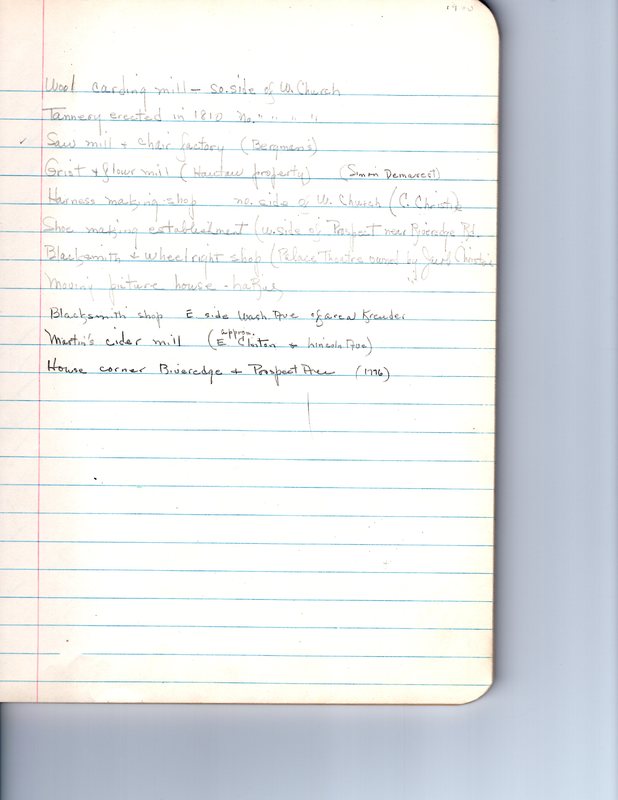 Wool carding mill - so. side of W. Church
Tannery erected in 1810 No. " " " "
Saw mill + chair factory (Bergman's)
Grist + flour mill ( property) (Simon Demarest)
Harness making shop no. side of W. Church (C. Christie
Shoe making establishment (w. side of Prospect near Riveredge Rd.
Blacksmith + wheelright shop (Palace Theatre owned by Christie
Moving picture house -
Blacksmith shop E side Wash. Ave of area Kreuder
approx.
Martin's cider mill (E Clinton & Lincoln Ave)
House corner Riveredge + Prospect Ave (1776)